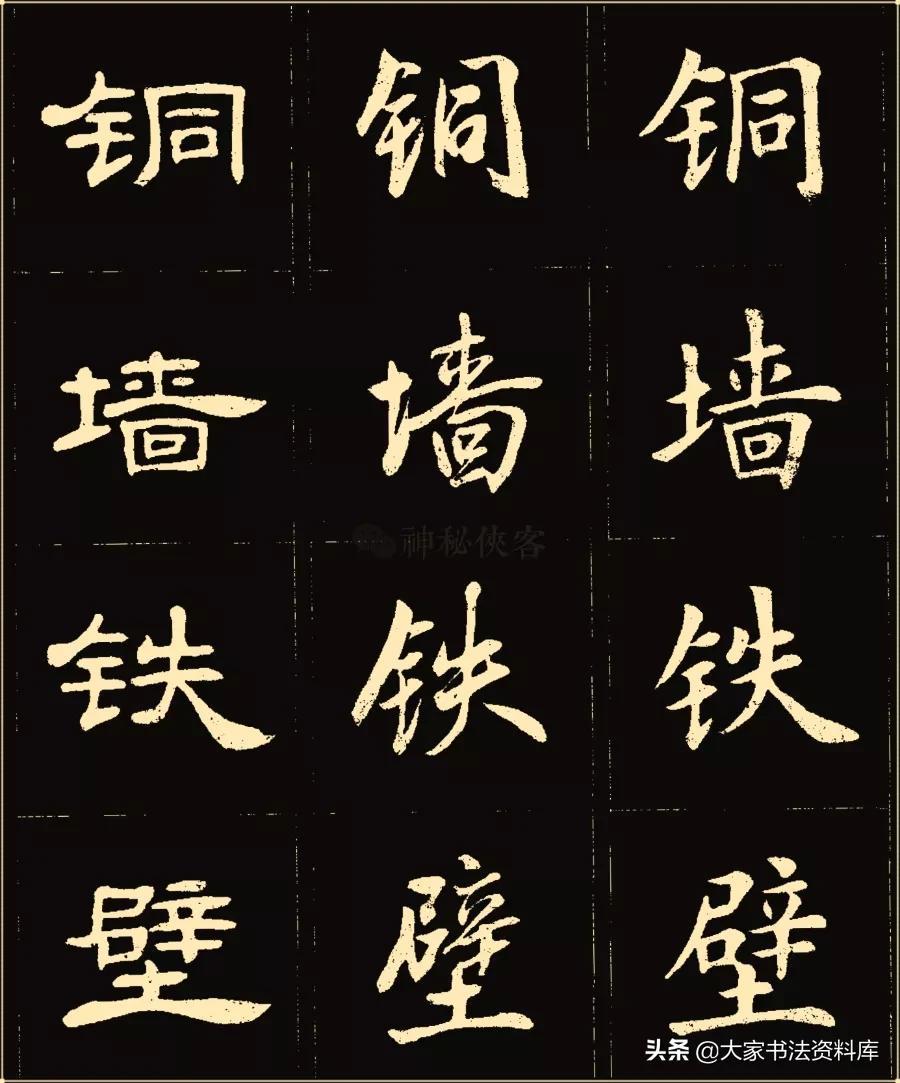 铜 铜 铜
墙 墙 墙
神秘侠客
铁 铁 铁
壁 壁 壁
头条 @大家书法资料库